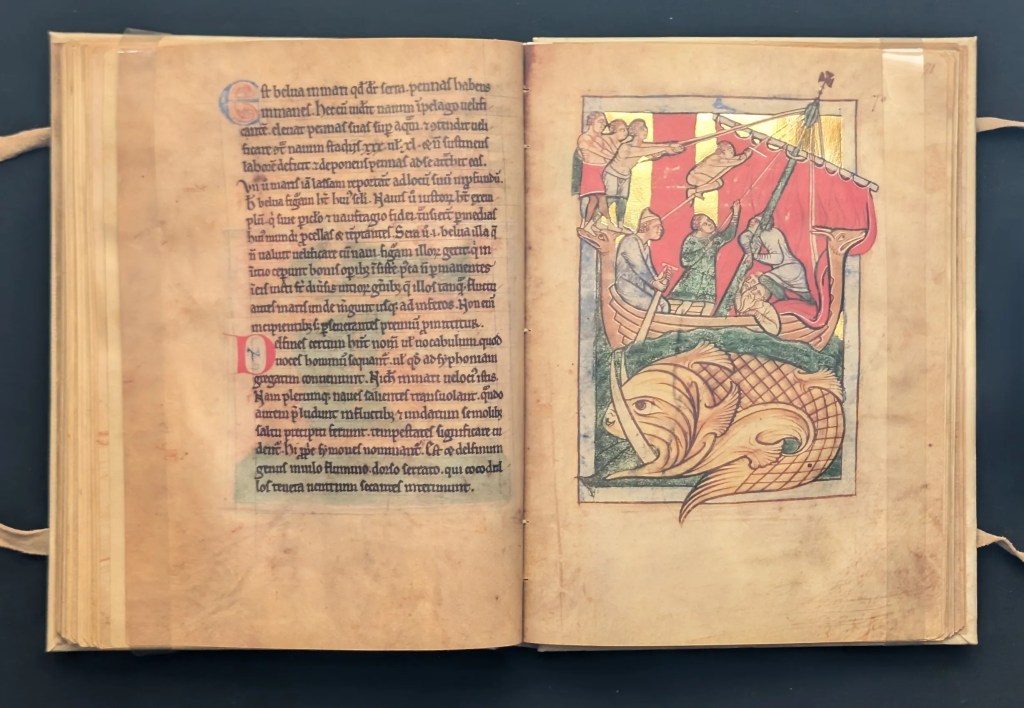 Est belua in mari q̄ dr̄ serra. pennas habens
inmanes. Hec cū uiderit nauim ī pelago uelifi
cantē. eleuat pennas suas sup̄ aquā. ⁊ c̄tendit ueli
ficare c̄t̄ nauim stadiis xxx. uł. xl. ⁊ ñ sustinens
laborē deficit. ⁊ deponens pennas ad se at̄hit eas.
Vnde ū maris iā lassam reportāt ad locū suū in p̄fundū.
h̄ belua figam̄ ht̄ hui' sc̄li. Naues ū iustoꝝ ht̄ exem
plū. q̄ sine pericło ⁊ naufragio fidei t̄nsieꝛt p̄ medias
hui' mundi p̄cellas ⁊ tēpestates. Serra ū .i. belua illa q̄
ñ ualuit uelificare cū naui. figam̄ illoꝝ gerit. q̇ in
initio ceperunt bonis opib; īsistē. p̄ea ñ p̄manentes
ī eis uicti st̄ diūsis uitioꝝ gn̄ib;. q̇ illos tanq̄. fluctu
antes maris unde m̄gunt usq; ad inferos. Non enī
incipientib; s; p̄seuerantes premiū p̄mittitur.
Delfines certum hn̄t nom̄ uł uocabulum. quod
uoces hominū sequant̄. uł. qd̄ ad symphoniam
gregatim conueniunt. Nich̄ in mari uelociꝰ istis.
Nam plerumq; naues salientes transuolant. Qn̄do
autem p̄ludunt in fluctib; ⁊ undarum se molib;
saltu precipiti feriunt. tempestates significare ui
dent̄. Hi ꝓp̄e symones nominant̄. Est ⁊ delfinum
genus in nilo flumine. dorso serrato. qui cocodril
los tenera uentrium secantes interimunt.